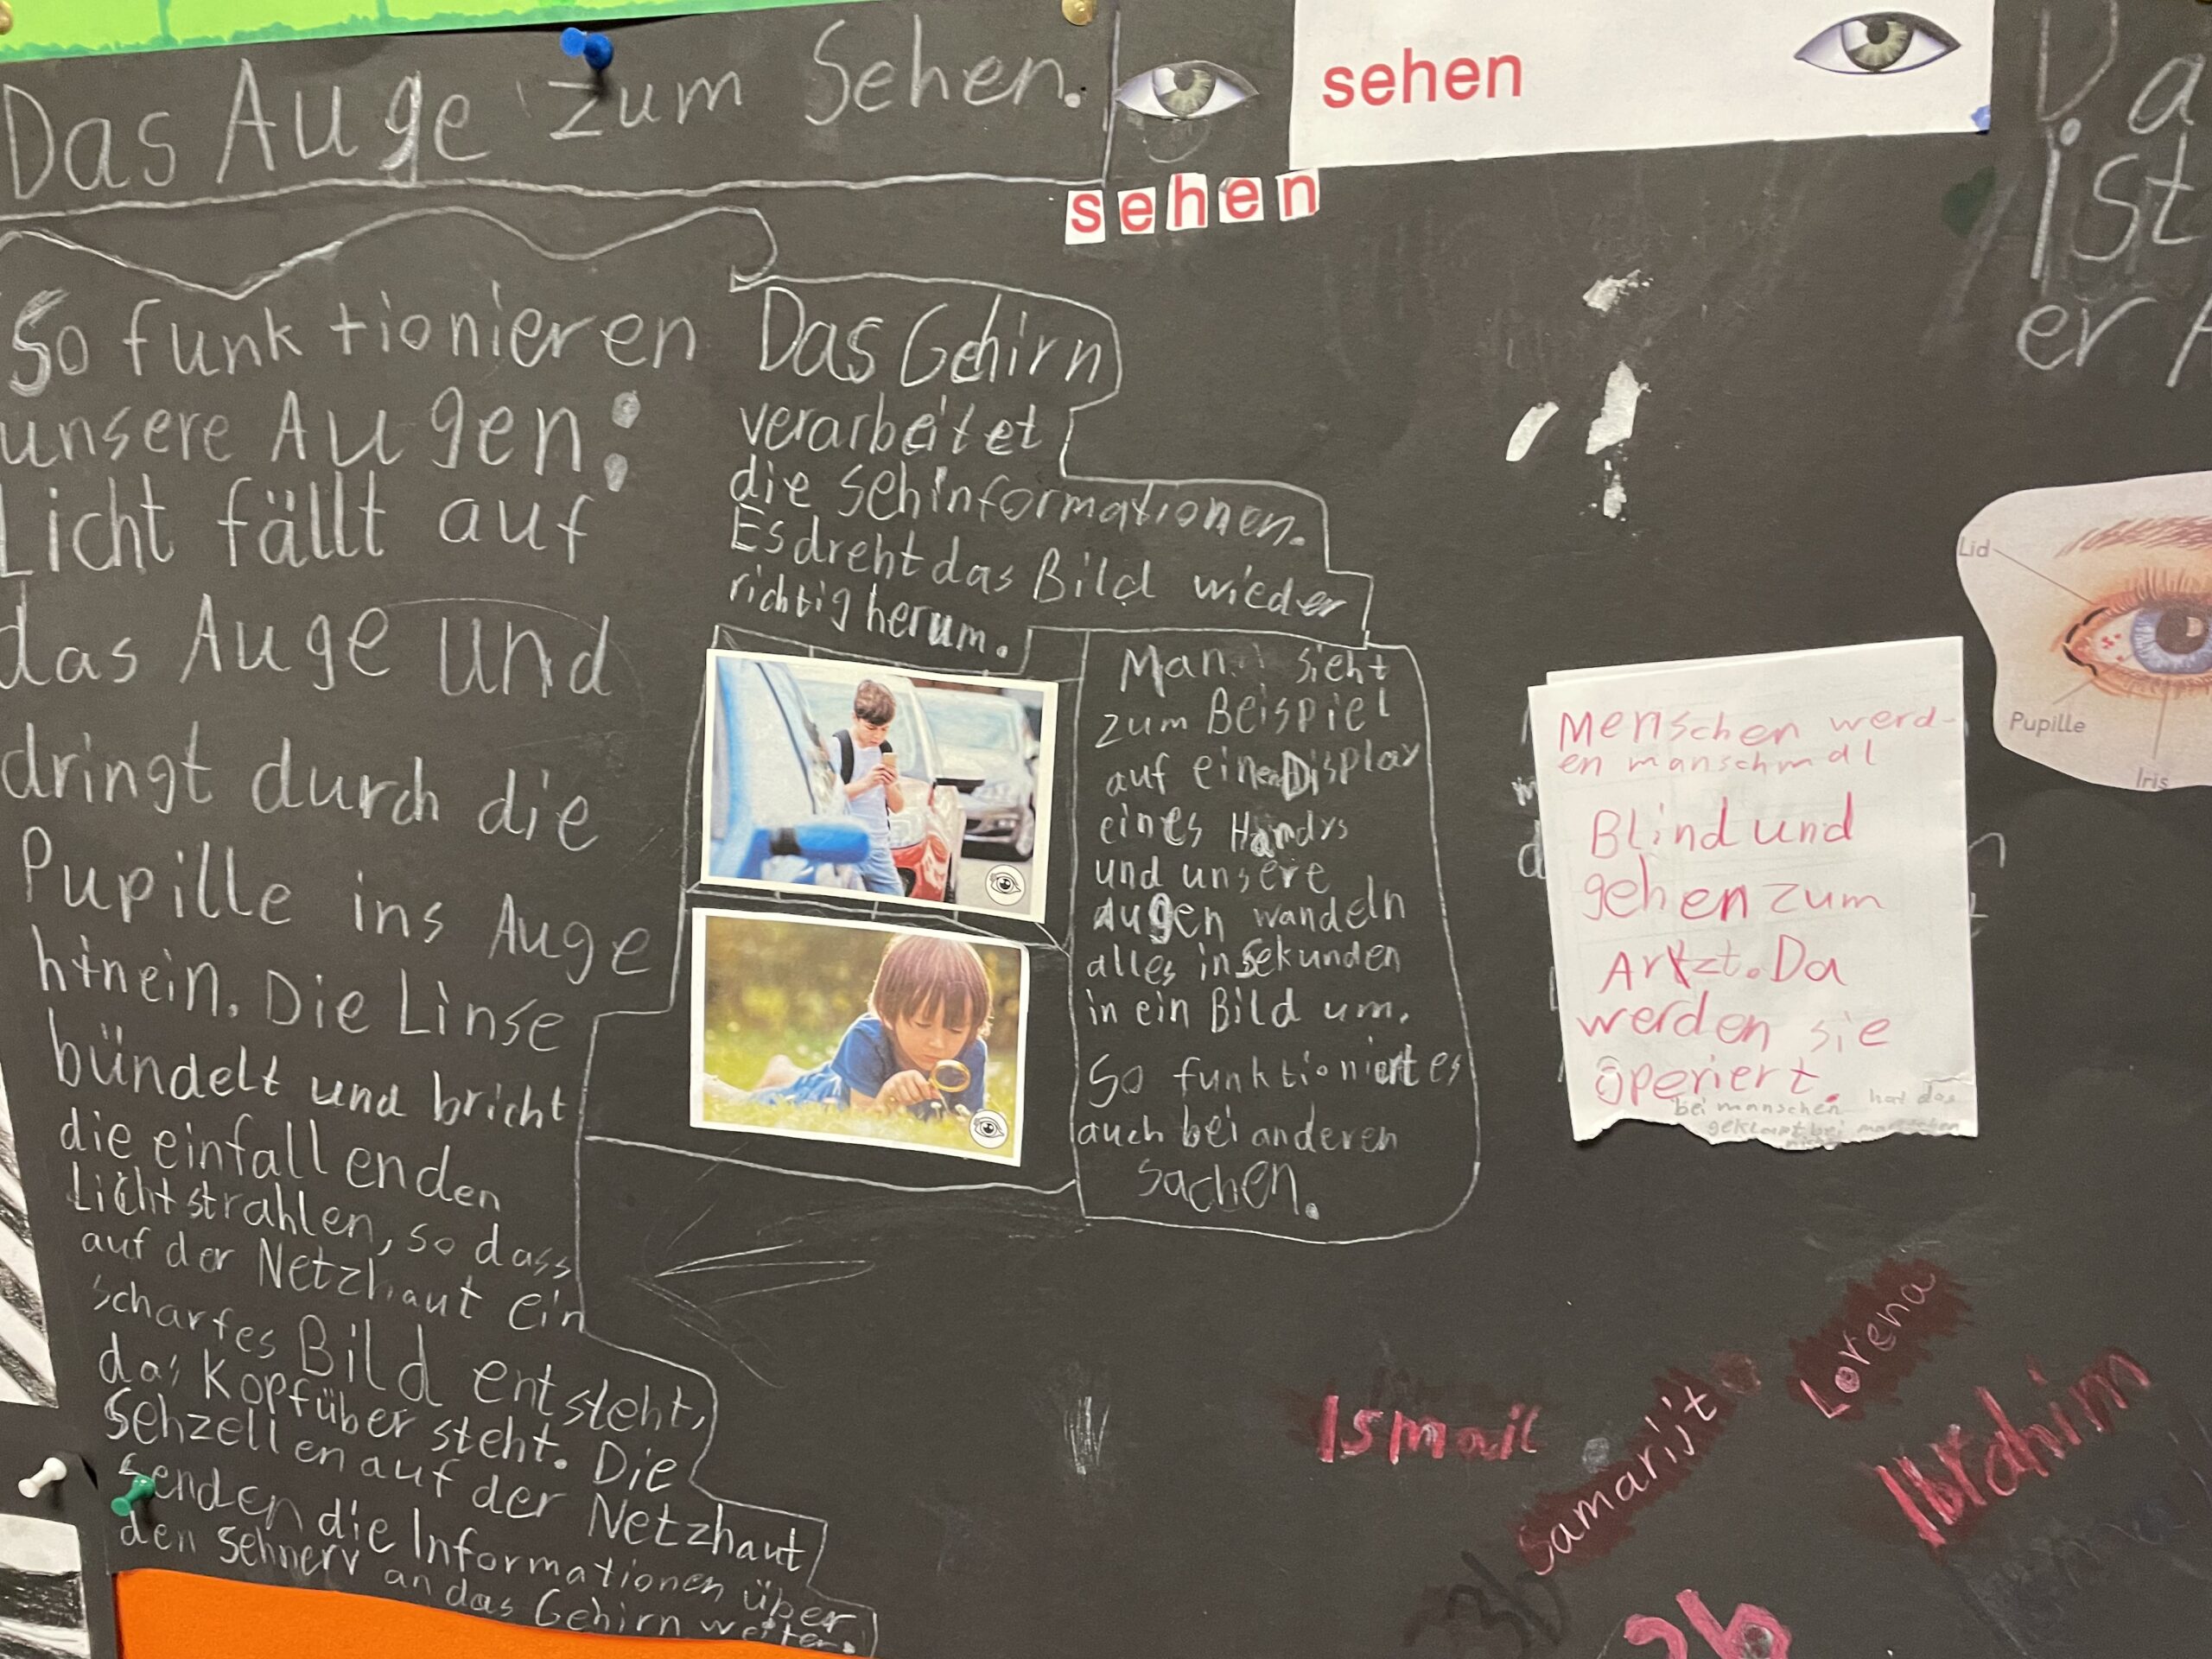 Das Auge zum Sehen.
sehen
sehen
So funktionieren
unsere Augen:
Licht fällt auf
das Auge und
dringt durch die
Pupille ins Auge
hinein. Die Linse
bündelt und bricht
die einfallenden
Lichtstrahlen, so dass
auf der Netzhaut ein
scharfes Bild entsteht,
das Kopfüber steht. Die
Sehzellen auf der Netzhaut
senden die Informationen über
den Sehnerv an das Gehirn weiter.
Das Gehirn
verarbeitet
die Sehinformationen.
Es dreht das Bild wieder
richtig herum.
Man sieht
zum Beispiel
auf einen Display
eines Handys
und unsere
Augen wandeln
alles in sekunden
in ein Bild um.
So funktioniert es
auch bei anderen
sachen.
Menschen werd-
en manschmal
Blind und
gehen zum
Artzt. Da
werden sie
operiert.
bei manschen hat das
geklappt bei manschen
nicht
Da
ist
er
Lid
Pupille
Iris
Ismail
Samarijt
Lorena
Ibrahim
3b
3b